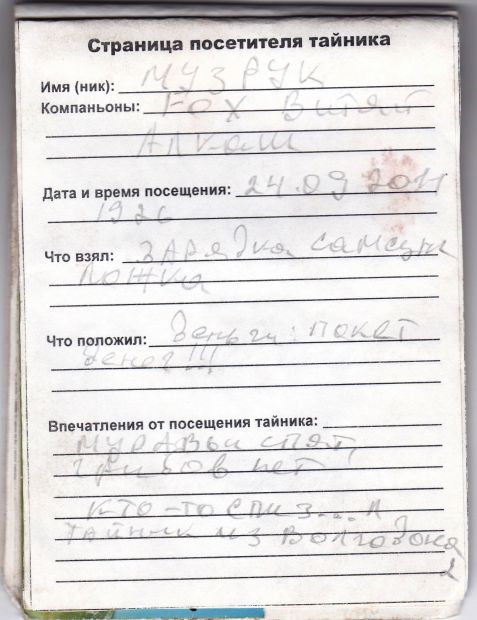 Страница посетителя тайника
Имя (ник): МУЗРУК
Компаньоны: Fox Витяй
Алкаш
Дата и время посещения: 24.09 2011
1926
Что взял: ЗАРЯДКА самсунг
Ложка
Что положил: Деньги: пакет
денег!!!
Впечатления от посещения тайника:
МУРАВЬи СПЯТ,
грибов нет
кто-то спиз....л
Тайник из Волгодонска